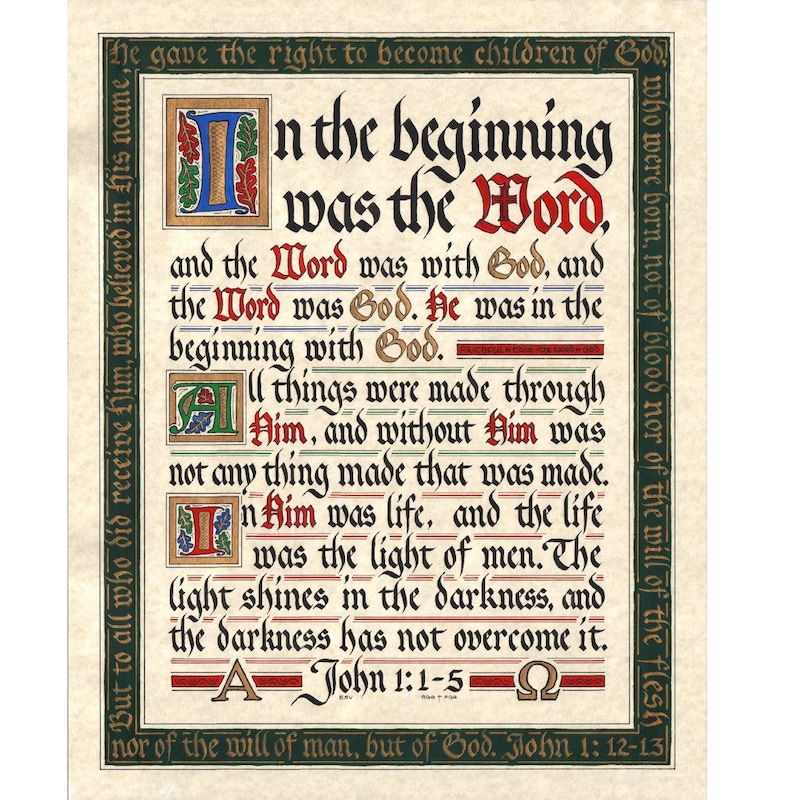 In the beginning
was the Word,
and the Word was with God, and
the Word was God. He was in the
beginning with God.
All things were made through
Him, and without Him was
not any thing made that was made.
In Him was life, and the life
was the light of men. The
light shines in the darkness, and
the darkness has not overcome it.
A John 1:1-5 Ω
ESV
But to all who did receive Him, who believed in His name,
he gave the right to become children of God,
who were born, not of blood nor of the will of the flesh
nor of the will of man, but of God. John 1: 12-13